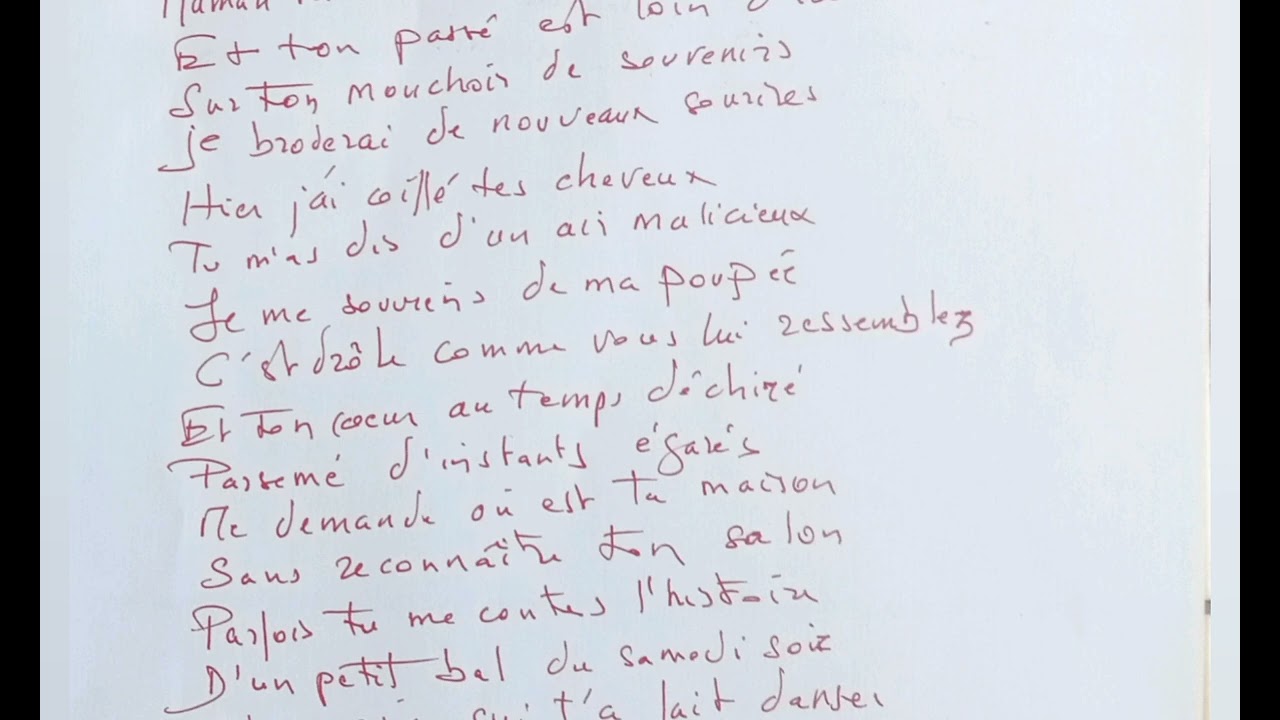 Maman
Et ton passé est loin
Sur ton mouchoir de souvenirs
je broderai de nouveaux sourires
Hier j'ai coiffé tes cheveux
Tu m'as dis d'un air malicieux
Je me souviens de ma poupée
C'est drôle comme vous lui ressemblez
Et ton coeur au temps déchiré
Parsemé d'instants égarés
Me demande où est ta maison
Sans reconnaître ton salon
Parfois tu me contes l'histoire
D'un petit bal du samedi soir
qui t'a fait danser